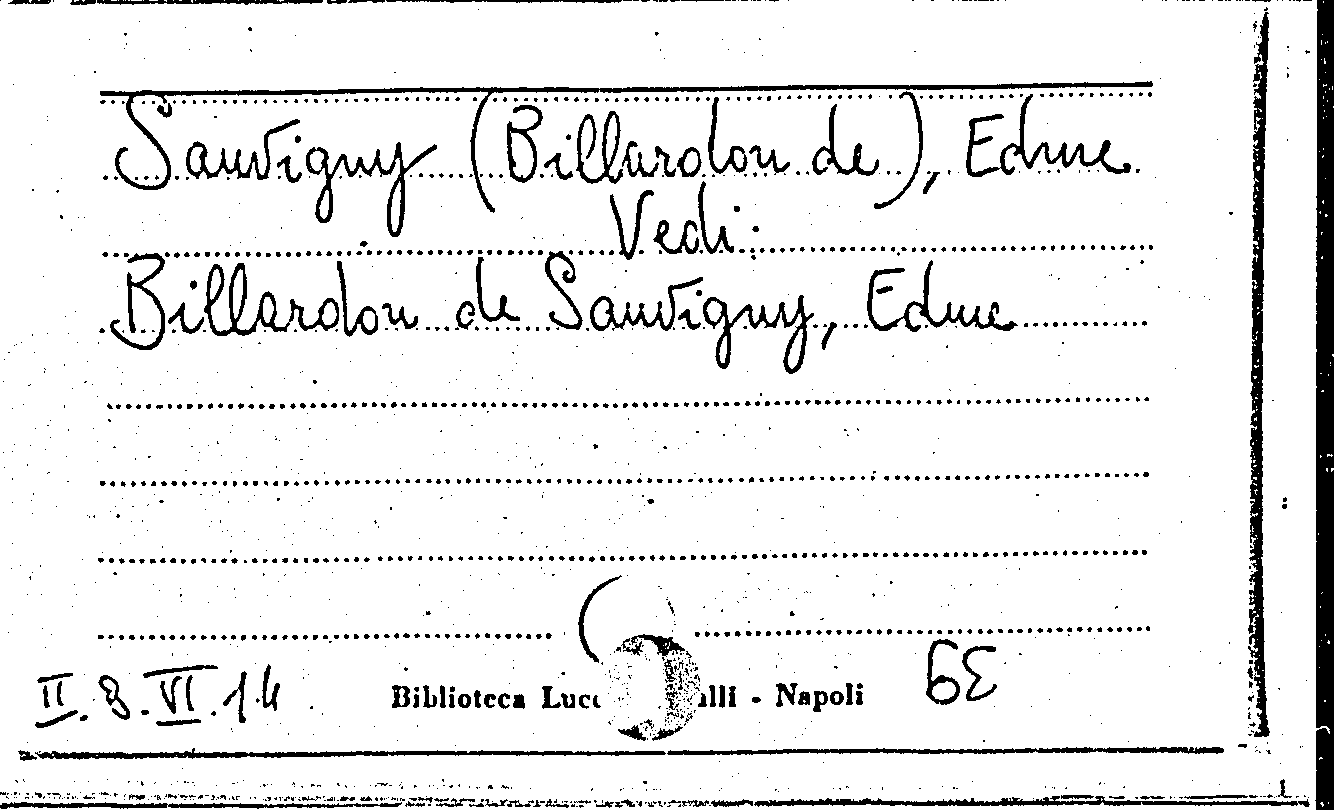 Sauvigny (Billardon de), Edme
Vedi:
Billardon de Sauvigny, Edme
II.8.VI.14
Biblioteca Lucc alli - Napoli